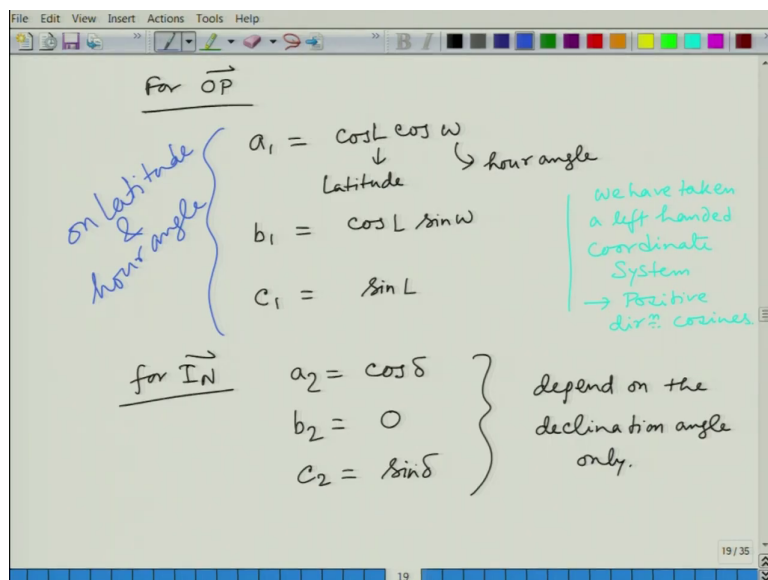 File Edit View Insert Actions Tools Help
For OP
a₁ = cosL cos ω
↓
Latitude
↳ hour angle
b₁ = cos L sin ω
c₁ = sin L
on Latitude
&
hour angle
we have taken
a left handed
coordinate
System
→ Positive
dirⁿ. cosines.
for IN
a₂ = cosδ
b₂ = 0
c₂ = sinδ
depend on the
declination angle
only.
19/35
19